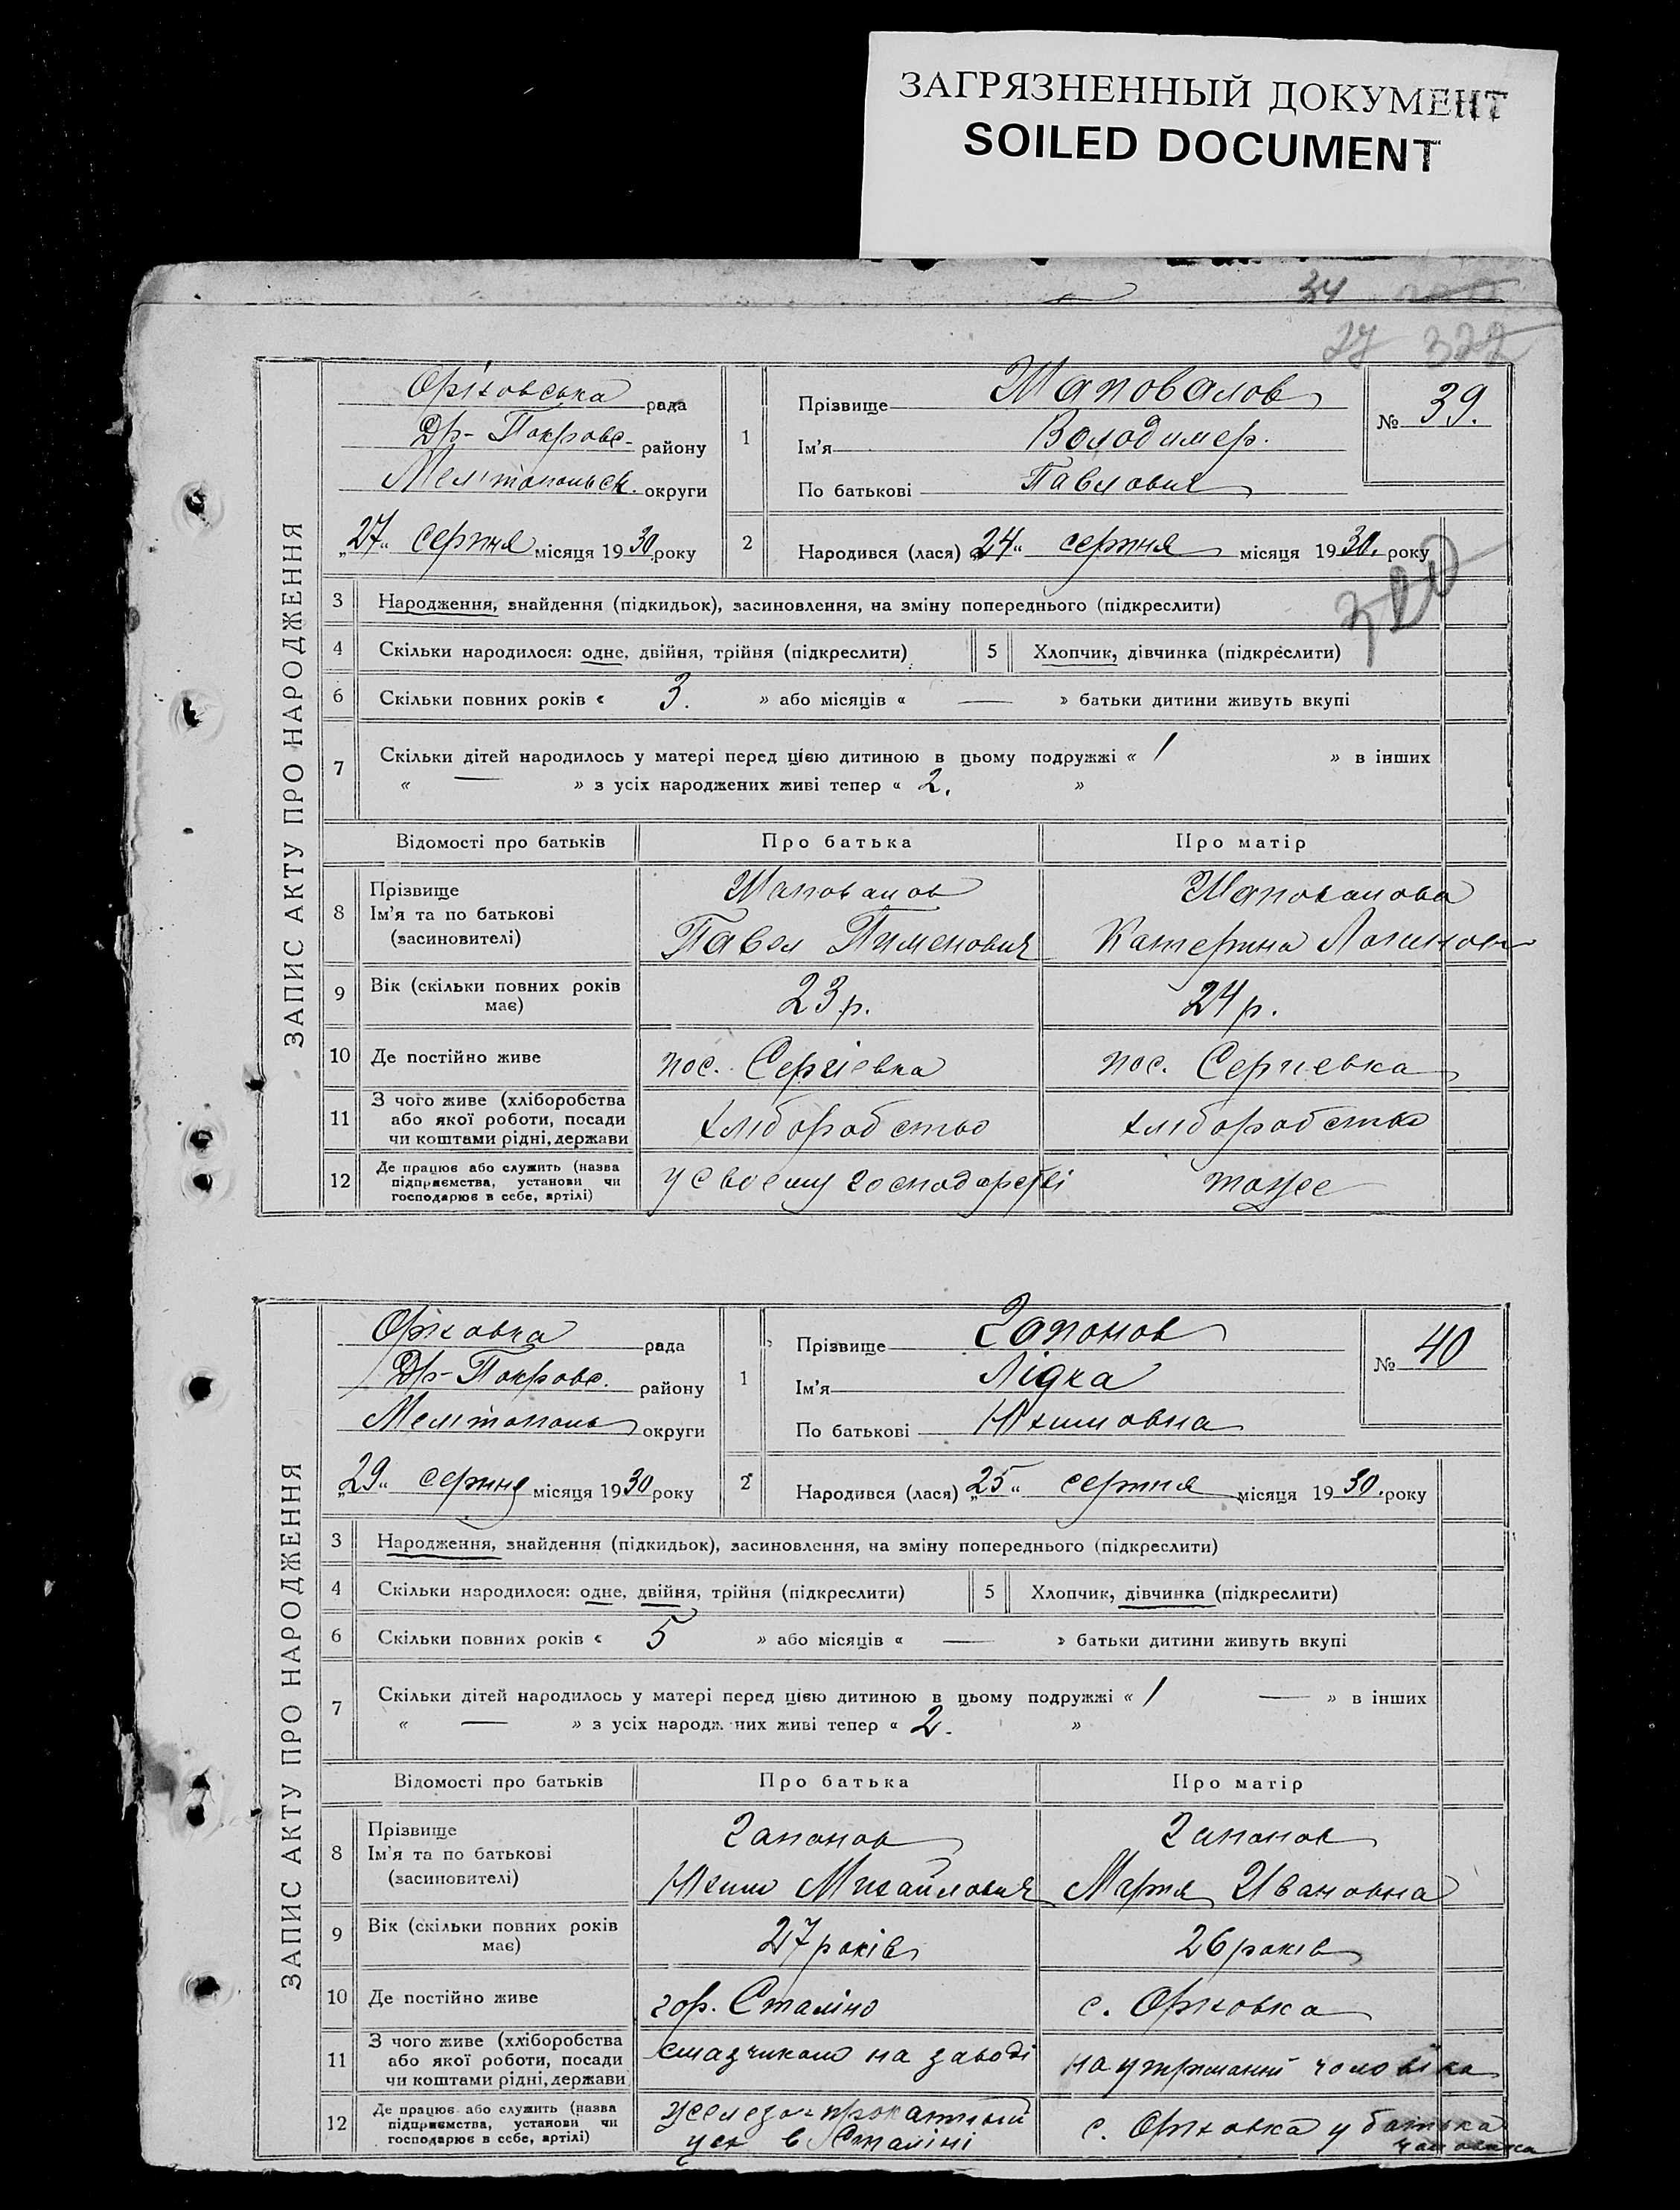 ЗАГРЯЗНЕННЫЙ ДОКУМЕНТ
SOILED DOCUMENT
34
27 322
ЗАПИС АКТУ ПРО НАРОДЖЕННЯ
Оріховська рада
Др-Покровс. району
Мелітопольск. округи
„27“ серпня місяця 1930 року
1
Прізвище Шаповалов
Ім'я Володимер.
По батькові Павлович
№ 39.
2
Народився (лася) „24“ серпня місяця 1930. року
320
3 Народження, знайдення (підкидьок), засиновлення, на зміну попереднього (підкреслити)
4 Скільки народилося: одне, двійня, трійня (підкреслити) 5 Хлопчик, дівчинка (підкреслити)
6 Скільки повних років « 3. » або місяців « — » батьки дитини живуть вкупі
7 Скільки дітей народилось у матері перед цією дитиною в цьому подружжі « 1 » в інших
« — » з усіх народжених живі тепер « 2. »
Відомості про батьків Про батька Про матір
8 Прізвище
Ім'я та по батькові
(засиновителі)
Шаповалов
Павел Пименович
Шаповалова
Катерина Логинов
9 Вік (скільки повних років
має)
23 р. 24 р.
10 Де постійно живе пос. Сергіевка пос. Сергиевка
11 З чого живе (хліборобства
або якої роботи, посади
чи коштами рідні, держави
хліборобство хліборобство
12 Де працює або служить (назва
підприємства, установи чи
господарює в себе, артілі)
у своему господарстві тоже
ЗАПИС АКТУ ПРО НАРОДЖЕННЯ
Оріховка рада
Др-Покровс. району
Мелітополь округи
„29“ серпня місяця 1930 року
1
Прізвище Гапонов
Ім'я Лідка
По батькові Юхимовна
№ 40
2
Народився (лася) „25“ серпня місяця 1930. року
3 Народження, знайдення (підкидьок), засиновлення, на зміну попереднього (підкреслити)
4 Скільки народилося: одне, двійня, трійня (підкреслити) 5 Хлопчик, дівчинка (підкреслити)
6 Скільки повних років « 5 » або місяців « — » батьки дитини живуть вкупі
7 Скільки дітей народилось у матері перед цією дитиною в цьому подружжі « 1 — » в інших
« — » з усіх народж них живі тепер « 2. »
Відомості про батьків Про батька Про матір
8 Прізвище
Ім'я та по батькові
(засиновителі)
Гапонов
Юхим Михайлович
Гапонов
Мария Ивановна
9 Вік (скільки повних років
має)
27 років 26 років
10 Де постійно живе гор. Сталіно с. Оріховка
11 З чого живе (хліборобства
або якої роботи, посади
чи коштами рідні, держави
смазчиком на заводі на утриманні чоловіка
12 Де працює або служить (назва
підприємства, установи чи
господарює в себе, артілі)
железо-прокатный
цех в Сталіні
с. Оріховка у батька
чоловіка